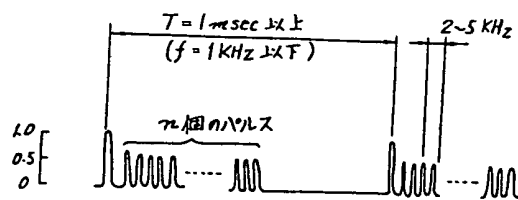 T = 1 msec 以上
(f = 1 KHz 以下)
2~5 KHz
n個のパルス
1.0
0.5
0